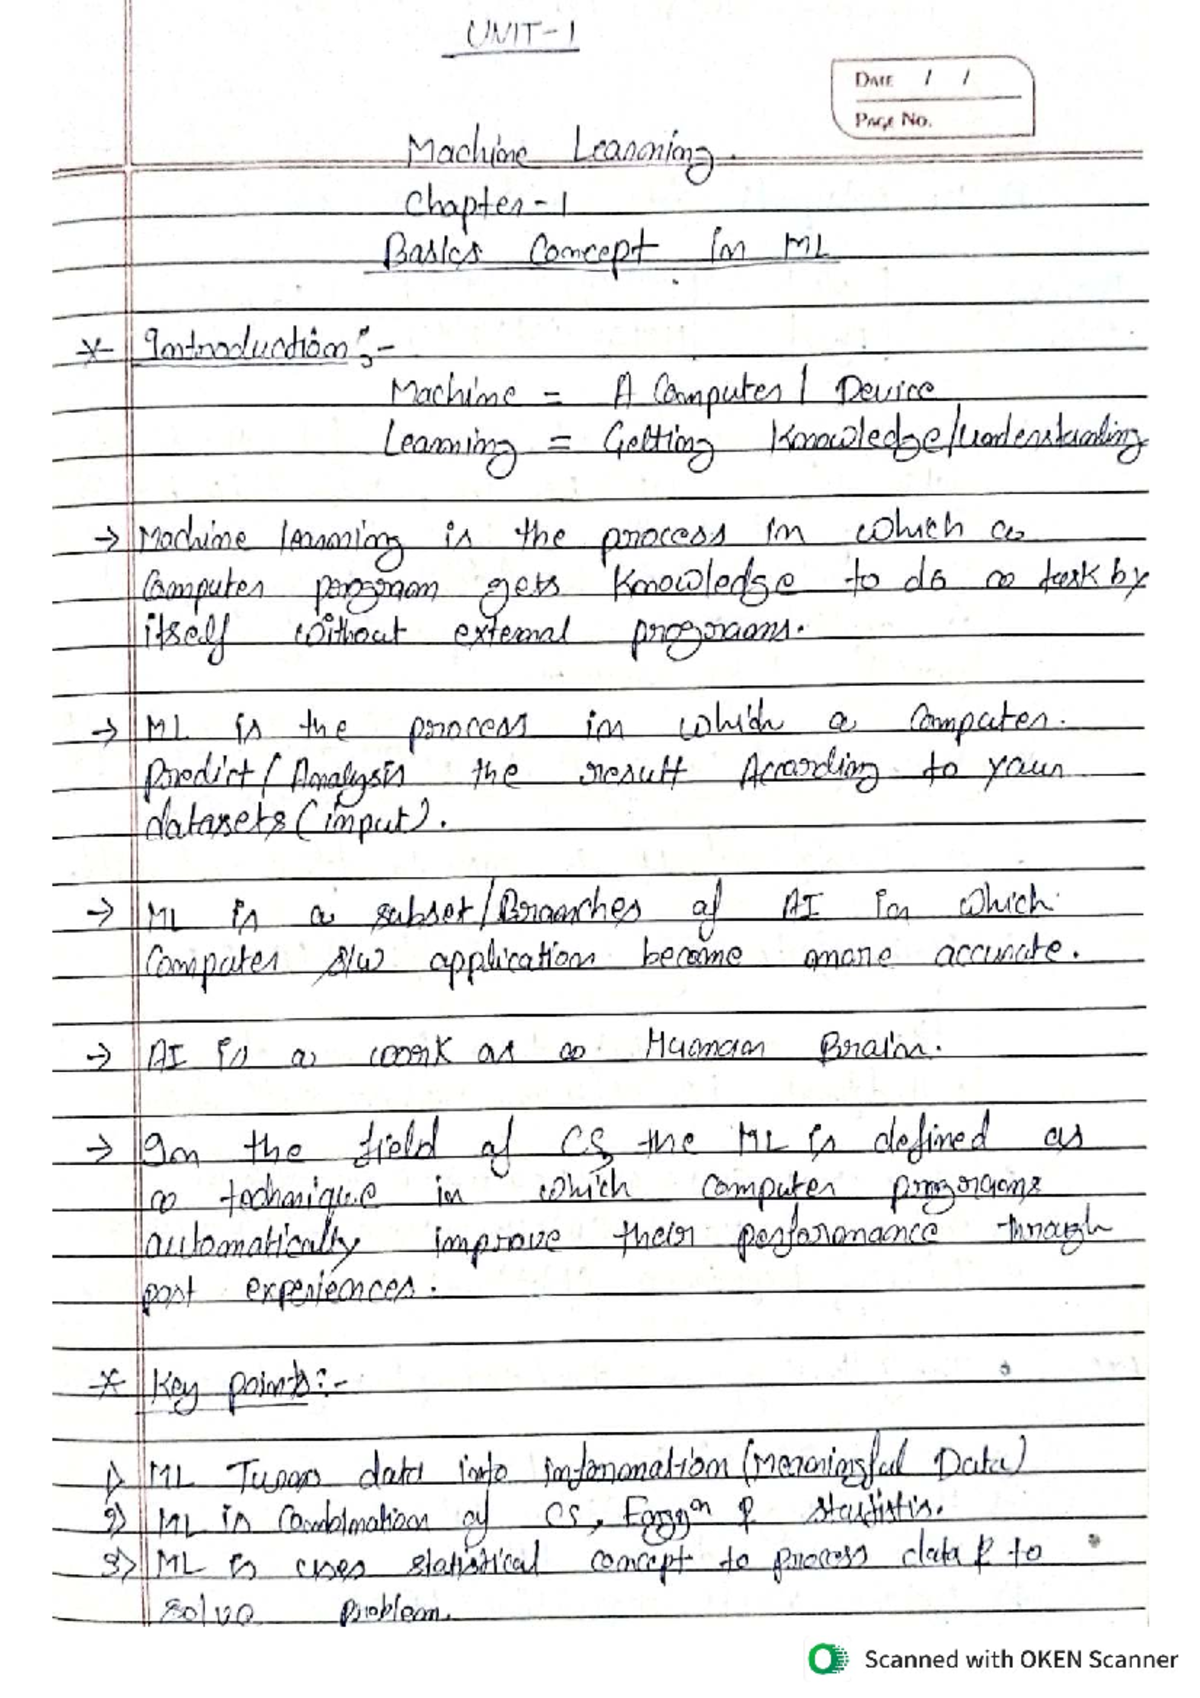 UNIT-1
DATE / /
PAGE No.
Machine Learning.
Chapter-1
Basics Concept in ML
* Introduction :-
Machine = A Computer / Device
Learning = Getting Knowledge/understanding
→ Machine learning is the process in which a
Computer program gets knowledge to do a task by
itself without external programs.
→ ML is the process in which a Computer
Predict / Analysis the result According to your
datasets (input).
→ ML is a subset/Branches of AI in which
Computer s/w application become more accurate.
→ AI is a work as a Human Brain.
→ In the field of CS, the ML is defined as
a technique in which computer programs
automatically improve their performance through
past experiences.
* Key points :-
1) ML Turns data into information (Meaningful Data)
2) ML is Combination of CS, Eggn & statistis.
3) ML is uses statistical concept to process data & to
solve problem.
Scanned with OKEN Scanner